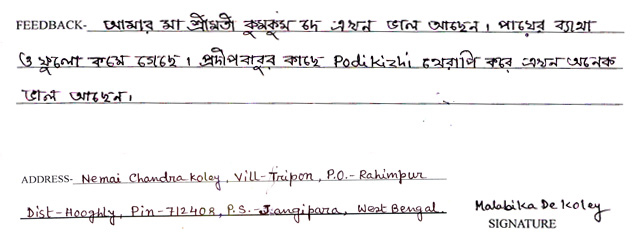 FEEDBACK- আমার মা শ্রীমতী কুমকুম দে এখন ভাল আছেন। পায়ের ব্যথা
ও ফুলো কমে গেছে। প্রদীপবাবুর কাছে Podikizhi থেরাপি করে এখন অনেক
ভাল আছেন।
ADDRESS- Nemai Chandra Koley, Vill-Tripon, P.O.-Rahimpur
Dist-Hooghly, Pin-712408, P.S.-Jangipara, West Bengal. Malabika De Koley
SIGNATURE